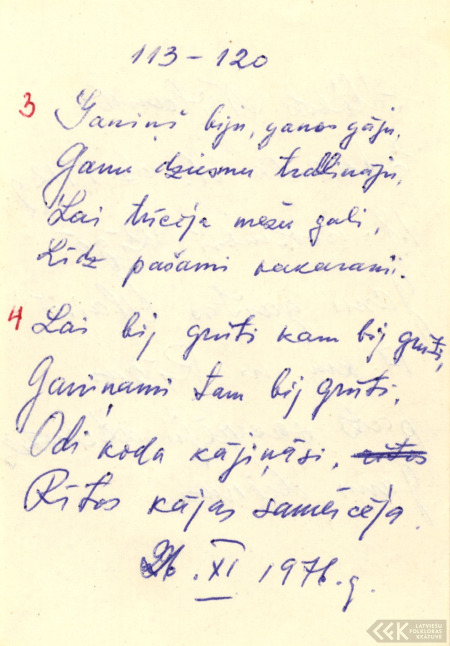 113-120
3 Ganiņš biju, ganos gāju,
Ganu dziesmu trallināju,
Lai trīcēja mežu gali,
Līdz pašami vakarami.
4 Lai bij grūti kam bij grūti,
Ganiņami tam bij grūti,
Odi koda kājiņāsi, rītos
Rītos kājas samērcēja.
26. XI 1976. g.
LATVIEŠU
FOLKLORAS
KRĀTUVE